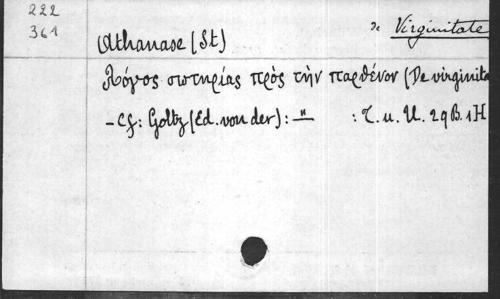 222
361
de Virginitate
Athanase (St)
Λόγος σωτηρίας πρὸς τὴν παρθένον (De virginita
– Cf: Goltz (Ed. von der) : — " : T. u. U. 29 B. 1 H